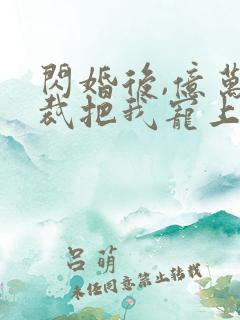 閃婚後,億萬
裁把我寵上
呂萌
未經同意禁止转載